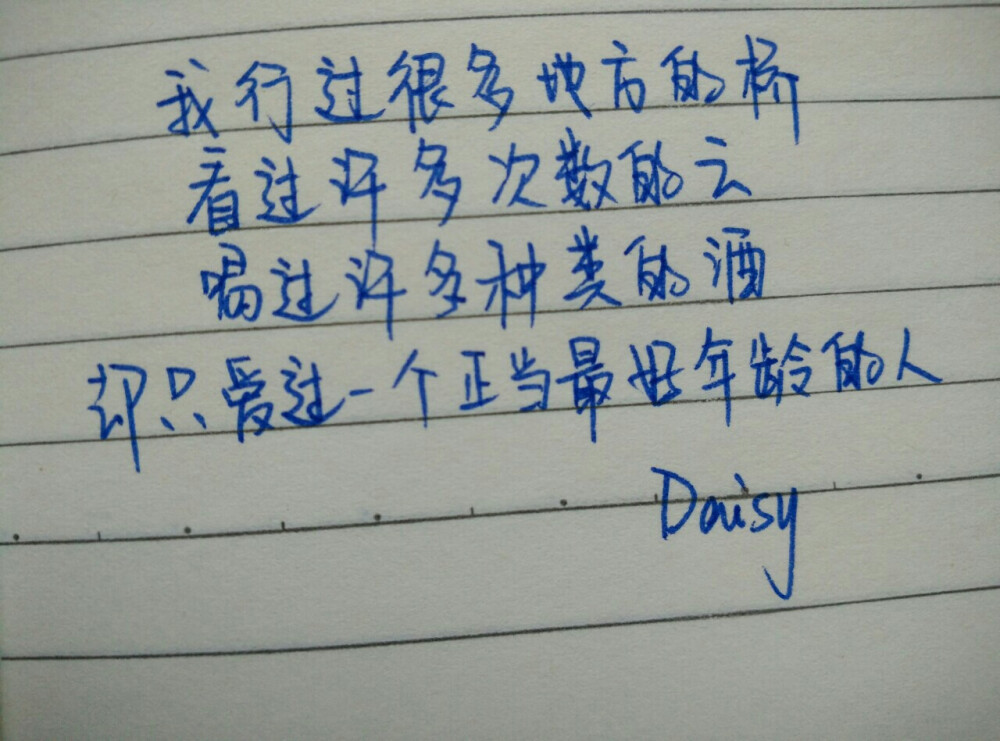 我行过很多地方的桥
看过许多次数的云
喝过许多种类的酒
却只爱过一个正当最好年龄的人
Daisy